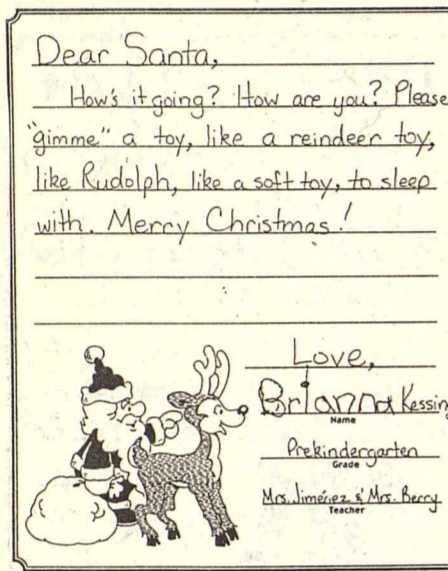 Dear Santa,
How's it going? How are you? Please
"gimme" a toy, like a reindeer toy,
like Rudolph, like a soft toy, to sleep
with. Merry Christmas!
Love,
Brianna Kessing
Name
Prekindergarten
Grade
Mrs. Jiménez & Mrs. Berry
Teacher